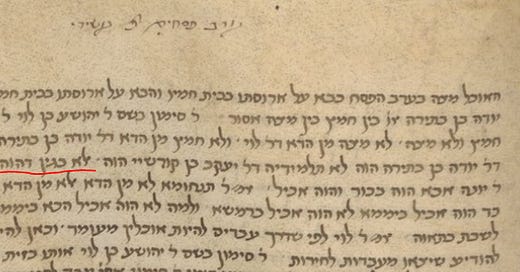 ערב פסחים
האוכל מצה בערב הפסח כבא על ארוסתו בבית חמיו והבא על ארוסתו בבית חמ
יודה בן בתירה או' בין חמץ בין מצה אסור ר' סימון בשם ר' יהושע בן לוי ר'
חמץ ולא מצה · לא מצה מן הדא דר' לוי · ולא חמץ מן הדא דר' יודה בן בתירה
דר' יודה בן בתירה הוה לא תלמידיה דר' יעקב בן קודשיי הוה · אלא בגין דהוה
ר' יונה אבא הוה בכור והוה אכיל · אמ' ר' תנחומא לא מן הדא אלא מן הדא
כד הוה אכיל ביממא לא הוה אכיל ברמשא · ולמה לא הוה אכיל הכא ביממ
לשבת בתאוה · אמ' ר' לוי לפי שדרך עבדים להיות אוכלין מעומד · וכאן להי
להודיע שיצאו מעבדות לחירות · ר' סימון בשם ר' יהושע בן לוי אותו כזית